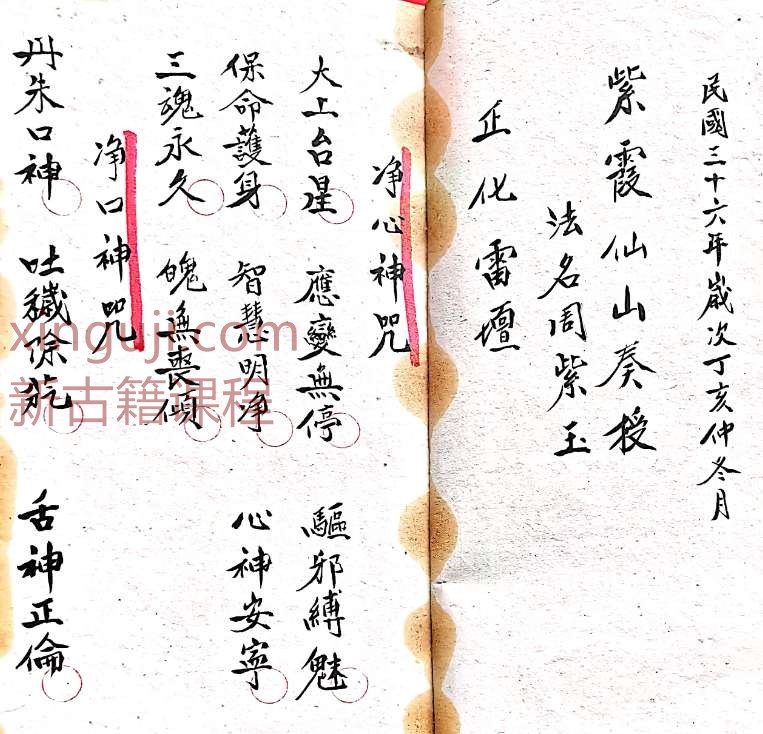 民國三十六年歲次丁亥仲冬月
紫霞仙山奏授
法名周紫玉
正化雷壇
净心神咒
大上台星 應變無停 驅邪縛魅
保命護身 智慧明净 心神安寧
三魂永久 魄無喪傾
净口神咒
丹朱口神 吐穢除氛 舌神正倫
xinguji.com
新古籍课程